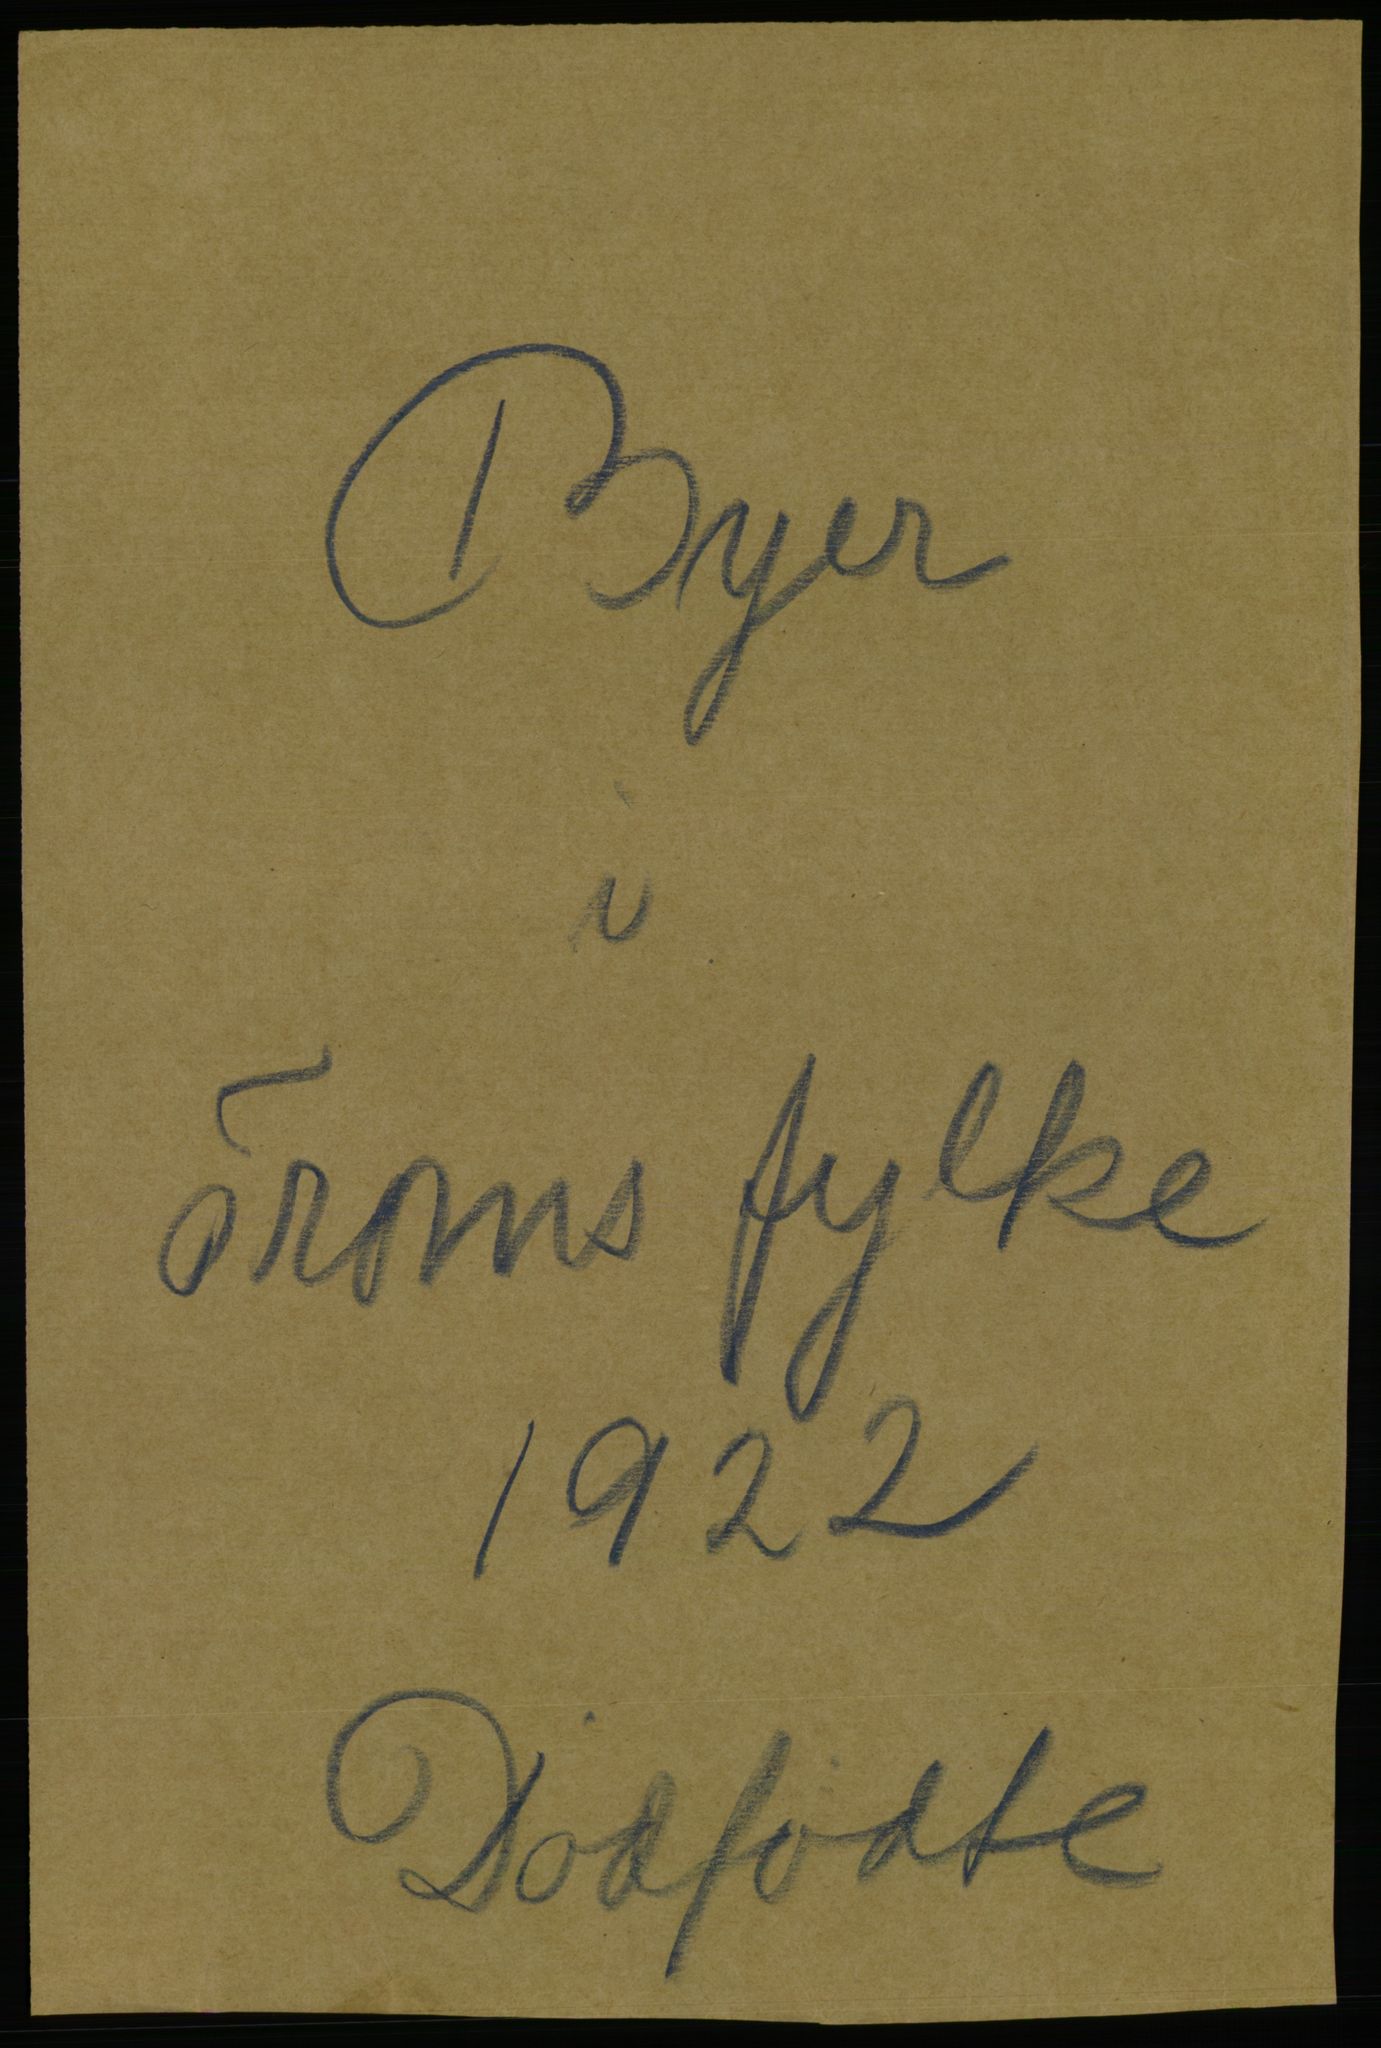 Byer
i
Troms fylke
1922
Dødfødte